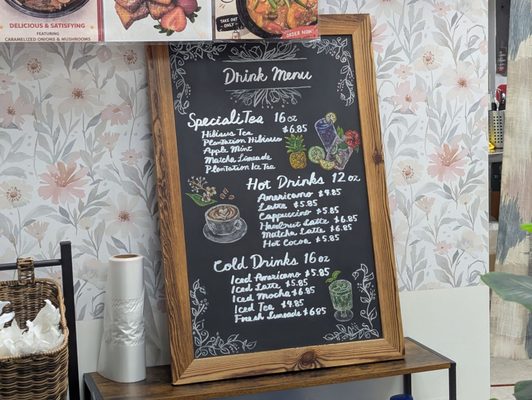 DELICIOUS & SATISFYING
FEATURING
CARAMELIZED ONIONS & MUSHROOMS
TAKE OUT
ORDER NOW
Drink Menu
SpecialiTea 16 oz
Hibiscus Tea $6.85
Plantation Hibiscus
Apple Mint
Matcha Limeade
Plantation Ice Tea
Hot Drinks 12 oz
Americano $4.85
Latte $5.85
Cappuccino $5.85
Hazelnut Latte $6.85
Matcha Latte $6.85
Hot Cocoa $5.85
Cold Drinks 16 oz
Iced Americano $5.85
Iced Latte $5.85
Iced Mocha $6.85
Iced Tea $4.85
Fresh Limeade $6.85